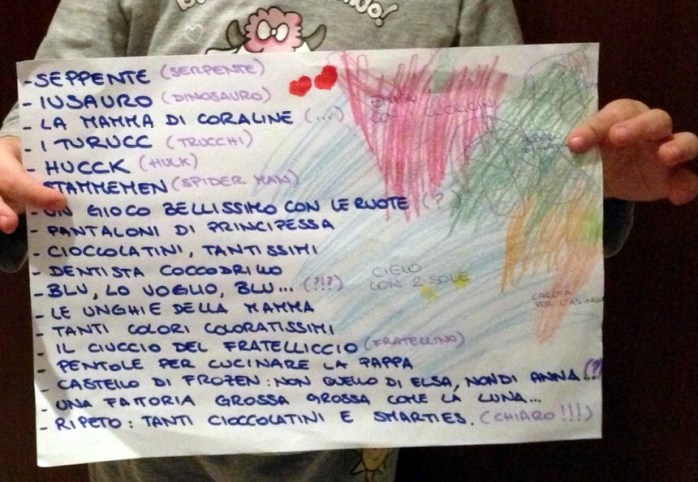 NO!
- SEPPENTE (SERPENTE)
- IUSAURO (DINOSAURO)
- LA MAMMA DI CORALINE (...)
- I TURUCC (TRUCCHI)
- HUCCK (HULK)
- STAMMEMEN (SPIDER MAN)
- UN GIOCO BELLISSIMO CON LE RUOTE (?)
- PANTALONI DI PRINCIPESSA
- CIOCCOLATINI, TANTISSIMI
- DENTISTA COCCODRILLO
- BLU, LO VOGLIO, BLU... (?!?)
- LE UNGHIE DELLA MAMMA
- TANTI COLORI COLORATISSIMI
- IL CIUCCIO DEL FRATELLICCIO (FRATELLINO)
- PENTOLE PER CUCINARE LA PAPPA
- CASTELLO DI FROZEN: NON QUELLO DI ELSA, NON DI ANNA (?
- UNA FATTORIA GROSSA GROSSA COME LA LUNA...
- RIPETO: TANTI CIOCCOLATINI E SMARTIES. (CHIARO!!!)
CIELO
CON 2 SOLE
CAROTA